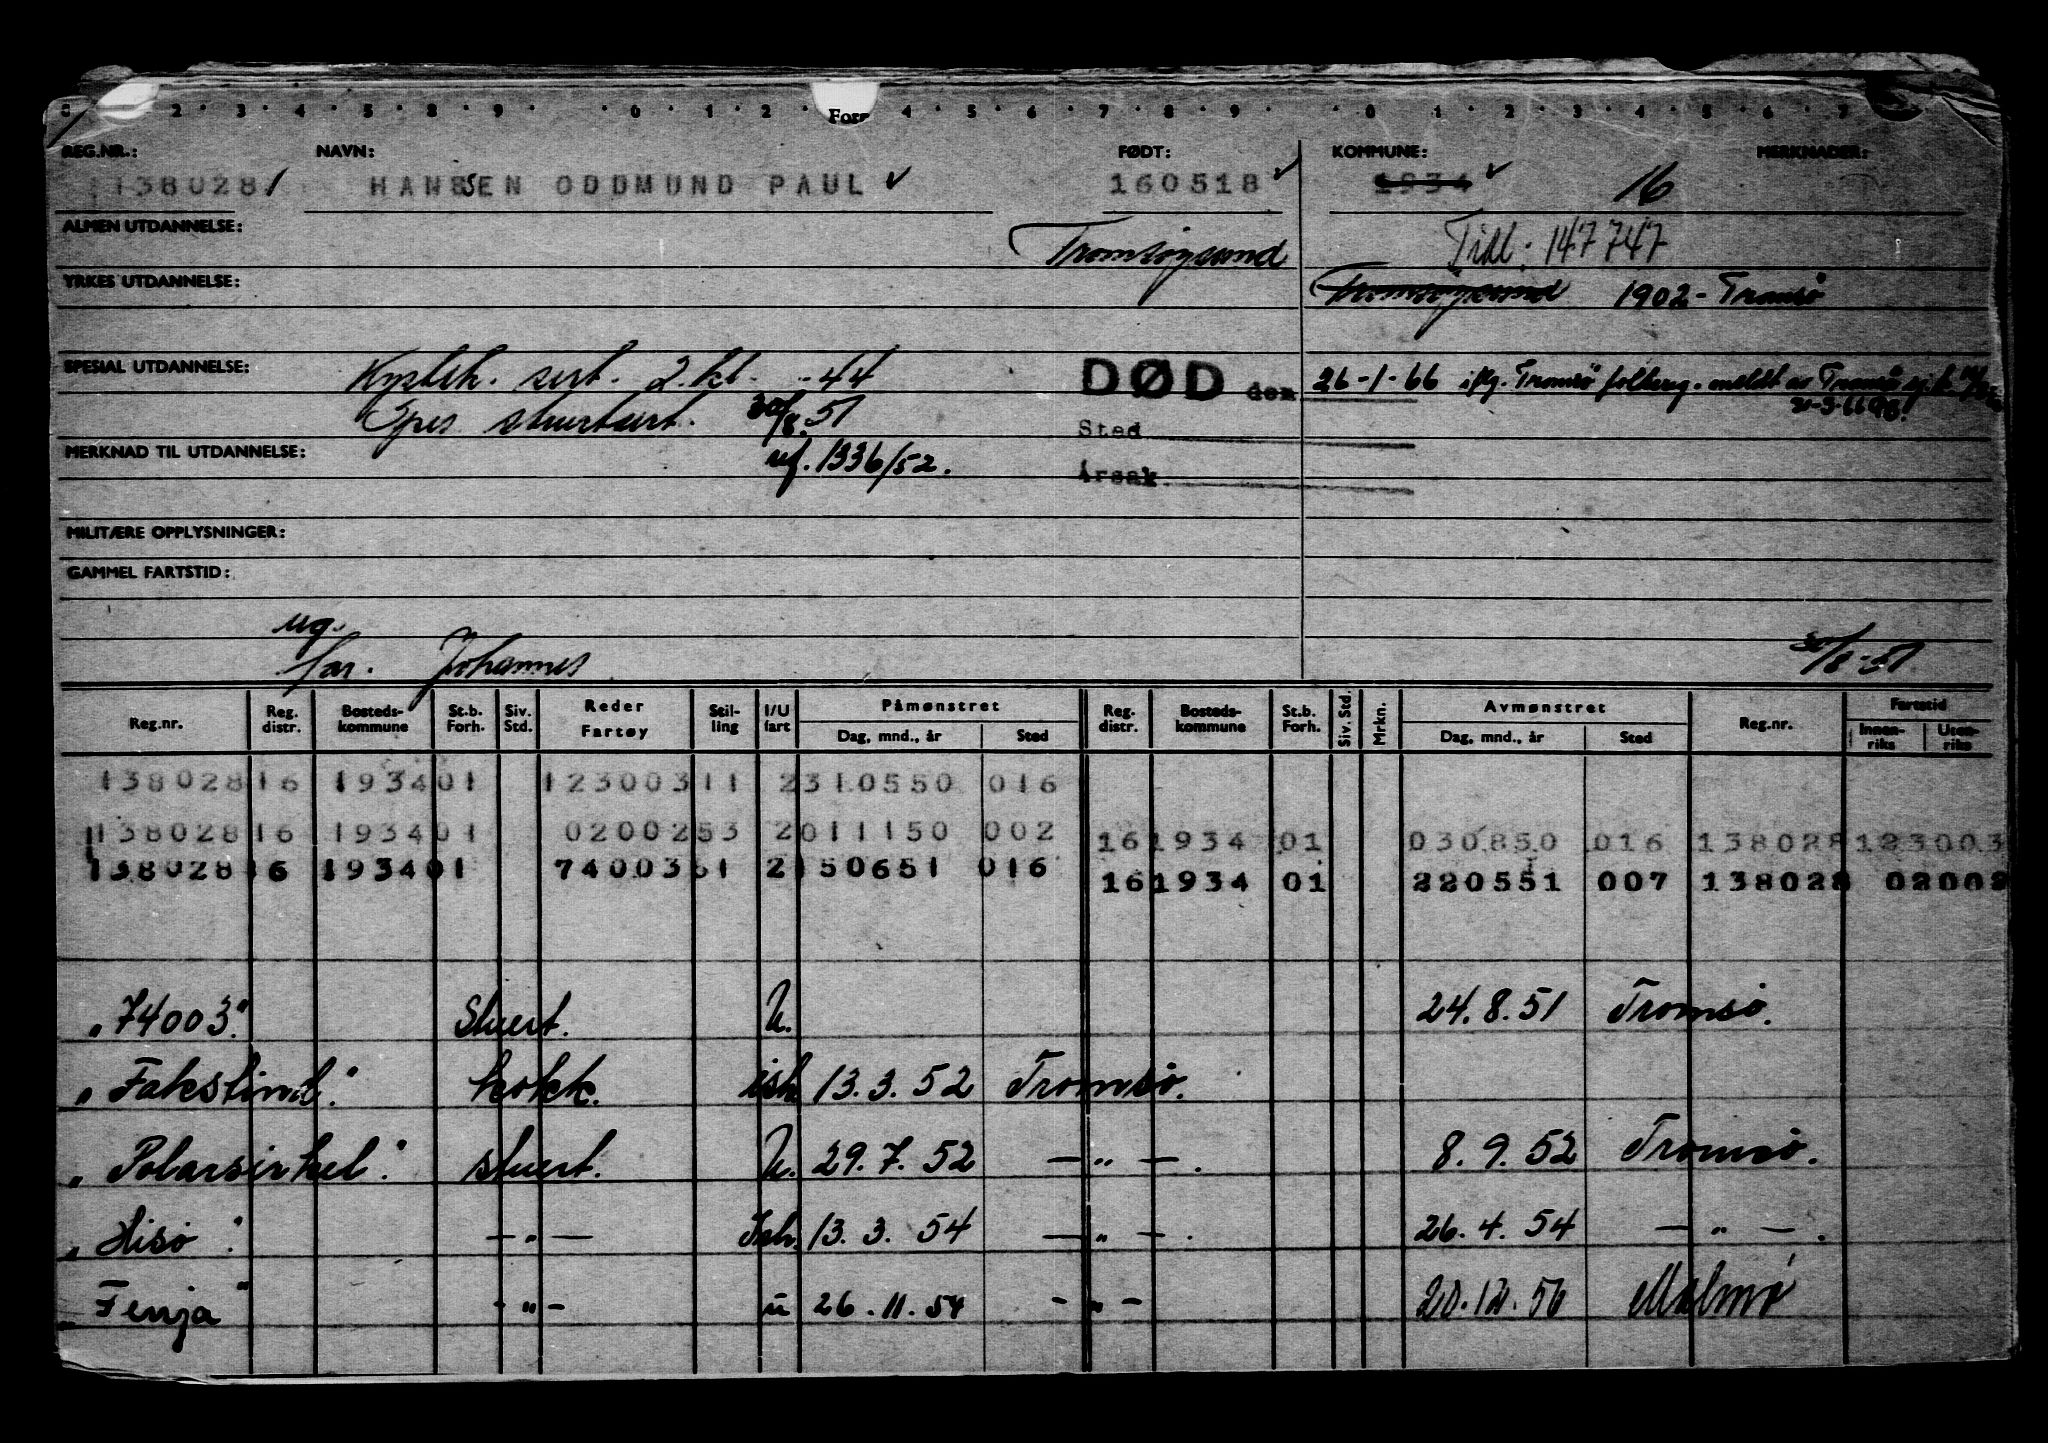 2 3 4 5 8 9 0 1 2 Forr 4 5 6 7 8 9 0 1 2 3 4 5 6 7
REG.NR.: NAVN: FØDT: KOMMUNE: MERKNADER:
138028 HANSEN ODDMUND PAUL 160518 1934 16
ALMEN UTDANNELSE: Tromsøysund Tidl. 147747
YRKES UTDANNELSE: Tromsøysund 1902 - Tromsø
SPESIAL UTDANNELSE: Kystsk. sert. 2. kl. - 44 DØD den 26-1-66 iflg. Tromsø folkereg. meldt av Tromsø
Spes stuertsert. 30/8.51 Sted
MERKNAD TIL UTDANNELSE: uf. 1336/52. Årsak
MILITÆRE OPPLYSNINGER:
GAMMEL FARTSTID:
ug.
far. Johannes 30/8-51
Reg.nr. Reg. distr. Bosteds- kommune St.b. Forh. Siv. Std. Reder Fartøy Stil- ling I/U fart Påmønstret Dag, mnd., år Sted Reg. distr. Bosteds- kommune St.b. Forh. Siv. Std. Mrkn. Avmønstret Dag, mnd., år Sted Reg.nr. Fartstid Innen- riks Uten- riks
138028 16 1934 01 12300311 2 310550 016
138028 16 1934 01 02002 53 2 011150 002 16 1934 01 030850 016 138028 123003
138028 16 1934 01 74003 51 2 150651 016 16 1934 01 220551 007 138028 02002
„74003" Stuert. U. 24.8.51 Tromsø.
„Fakstind" kokk. ish 13.3.52 Tromsø.
„Polarsirkel" stuert. U. 29.7.52 — „ —. 8.9.52 Tromsø.
„Hisø" — „ — Ish. 13.3.54 — „ —. 26.4.54 — „ —.
„Fenja" - „ - u 26.11.54 - „ - 20.12.56 Malmø